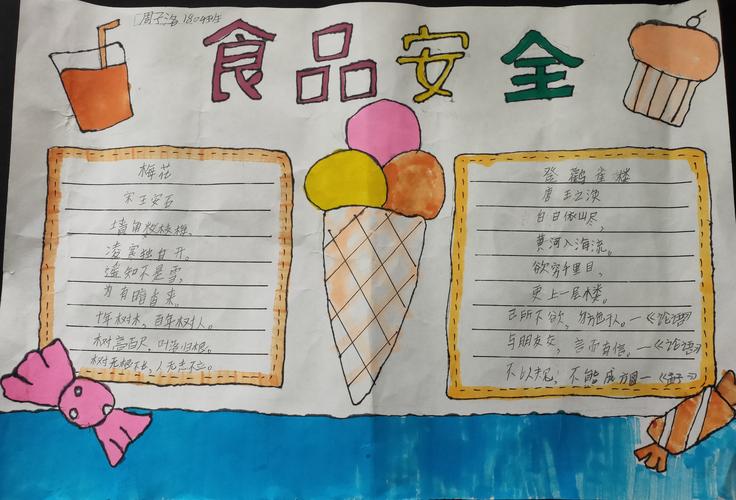 1804班
食品安全
梅花
宋王安石
墙角数枝梅,
凌寒独自开。
遥知不是雪,
为有暗香来。
十年树木,百年树人。
树高百尺 叶落归根。
树无根不长,人无志不立。
登鹳雀楼
唐 王之涣
白日依山尽,
黄河入海流。
欲穷千里目,
更上一层楼。
己所不欲,勿施于人。—《论语》
与朋友交,言而有信。—《论语》
不以 不能成方圆—《孟子》